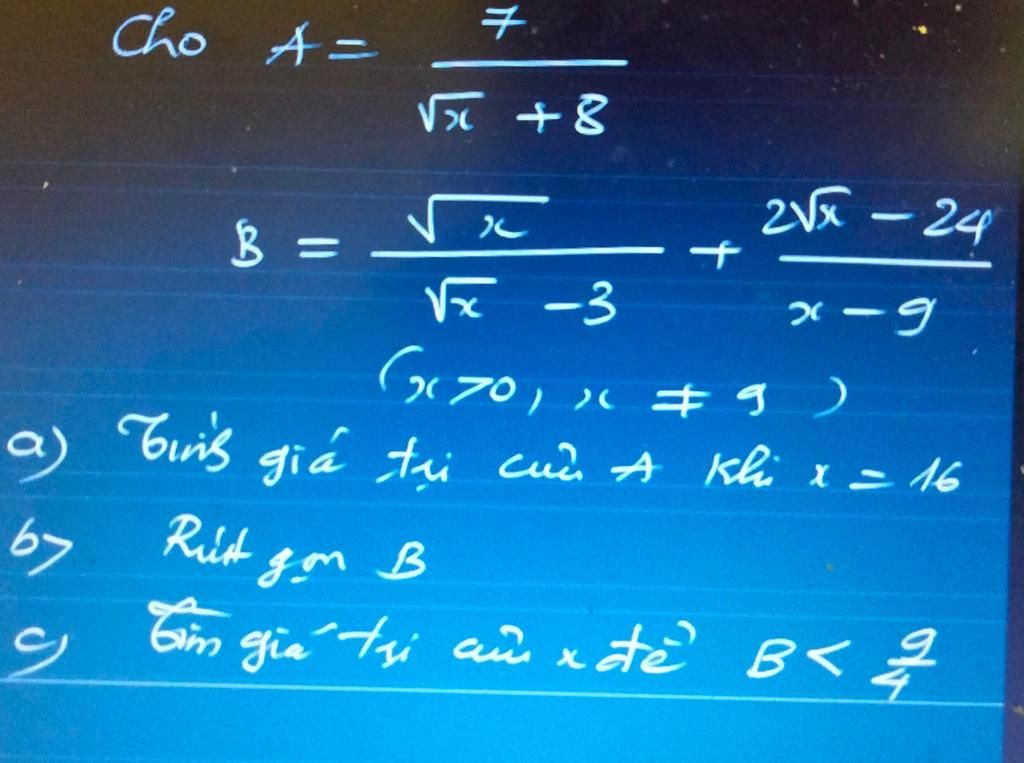 Cho A = 7 / (√x + 8)
B = √x / (√x - 3) + (2√x - 24) / (x - 9)
(x > 0, x ≠ 9)
a) Tính giá trị của A khi x = 16
b) Rút gọn B
c) Tìm giá trị của x để B < 9/4